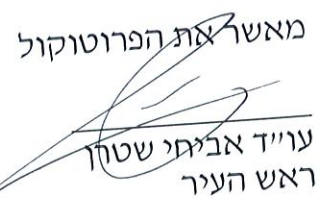 מאשר את הפרוטוקול
עו״ד אביחי שטרן
ראש העיר